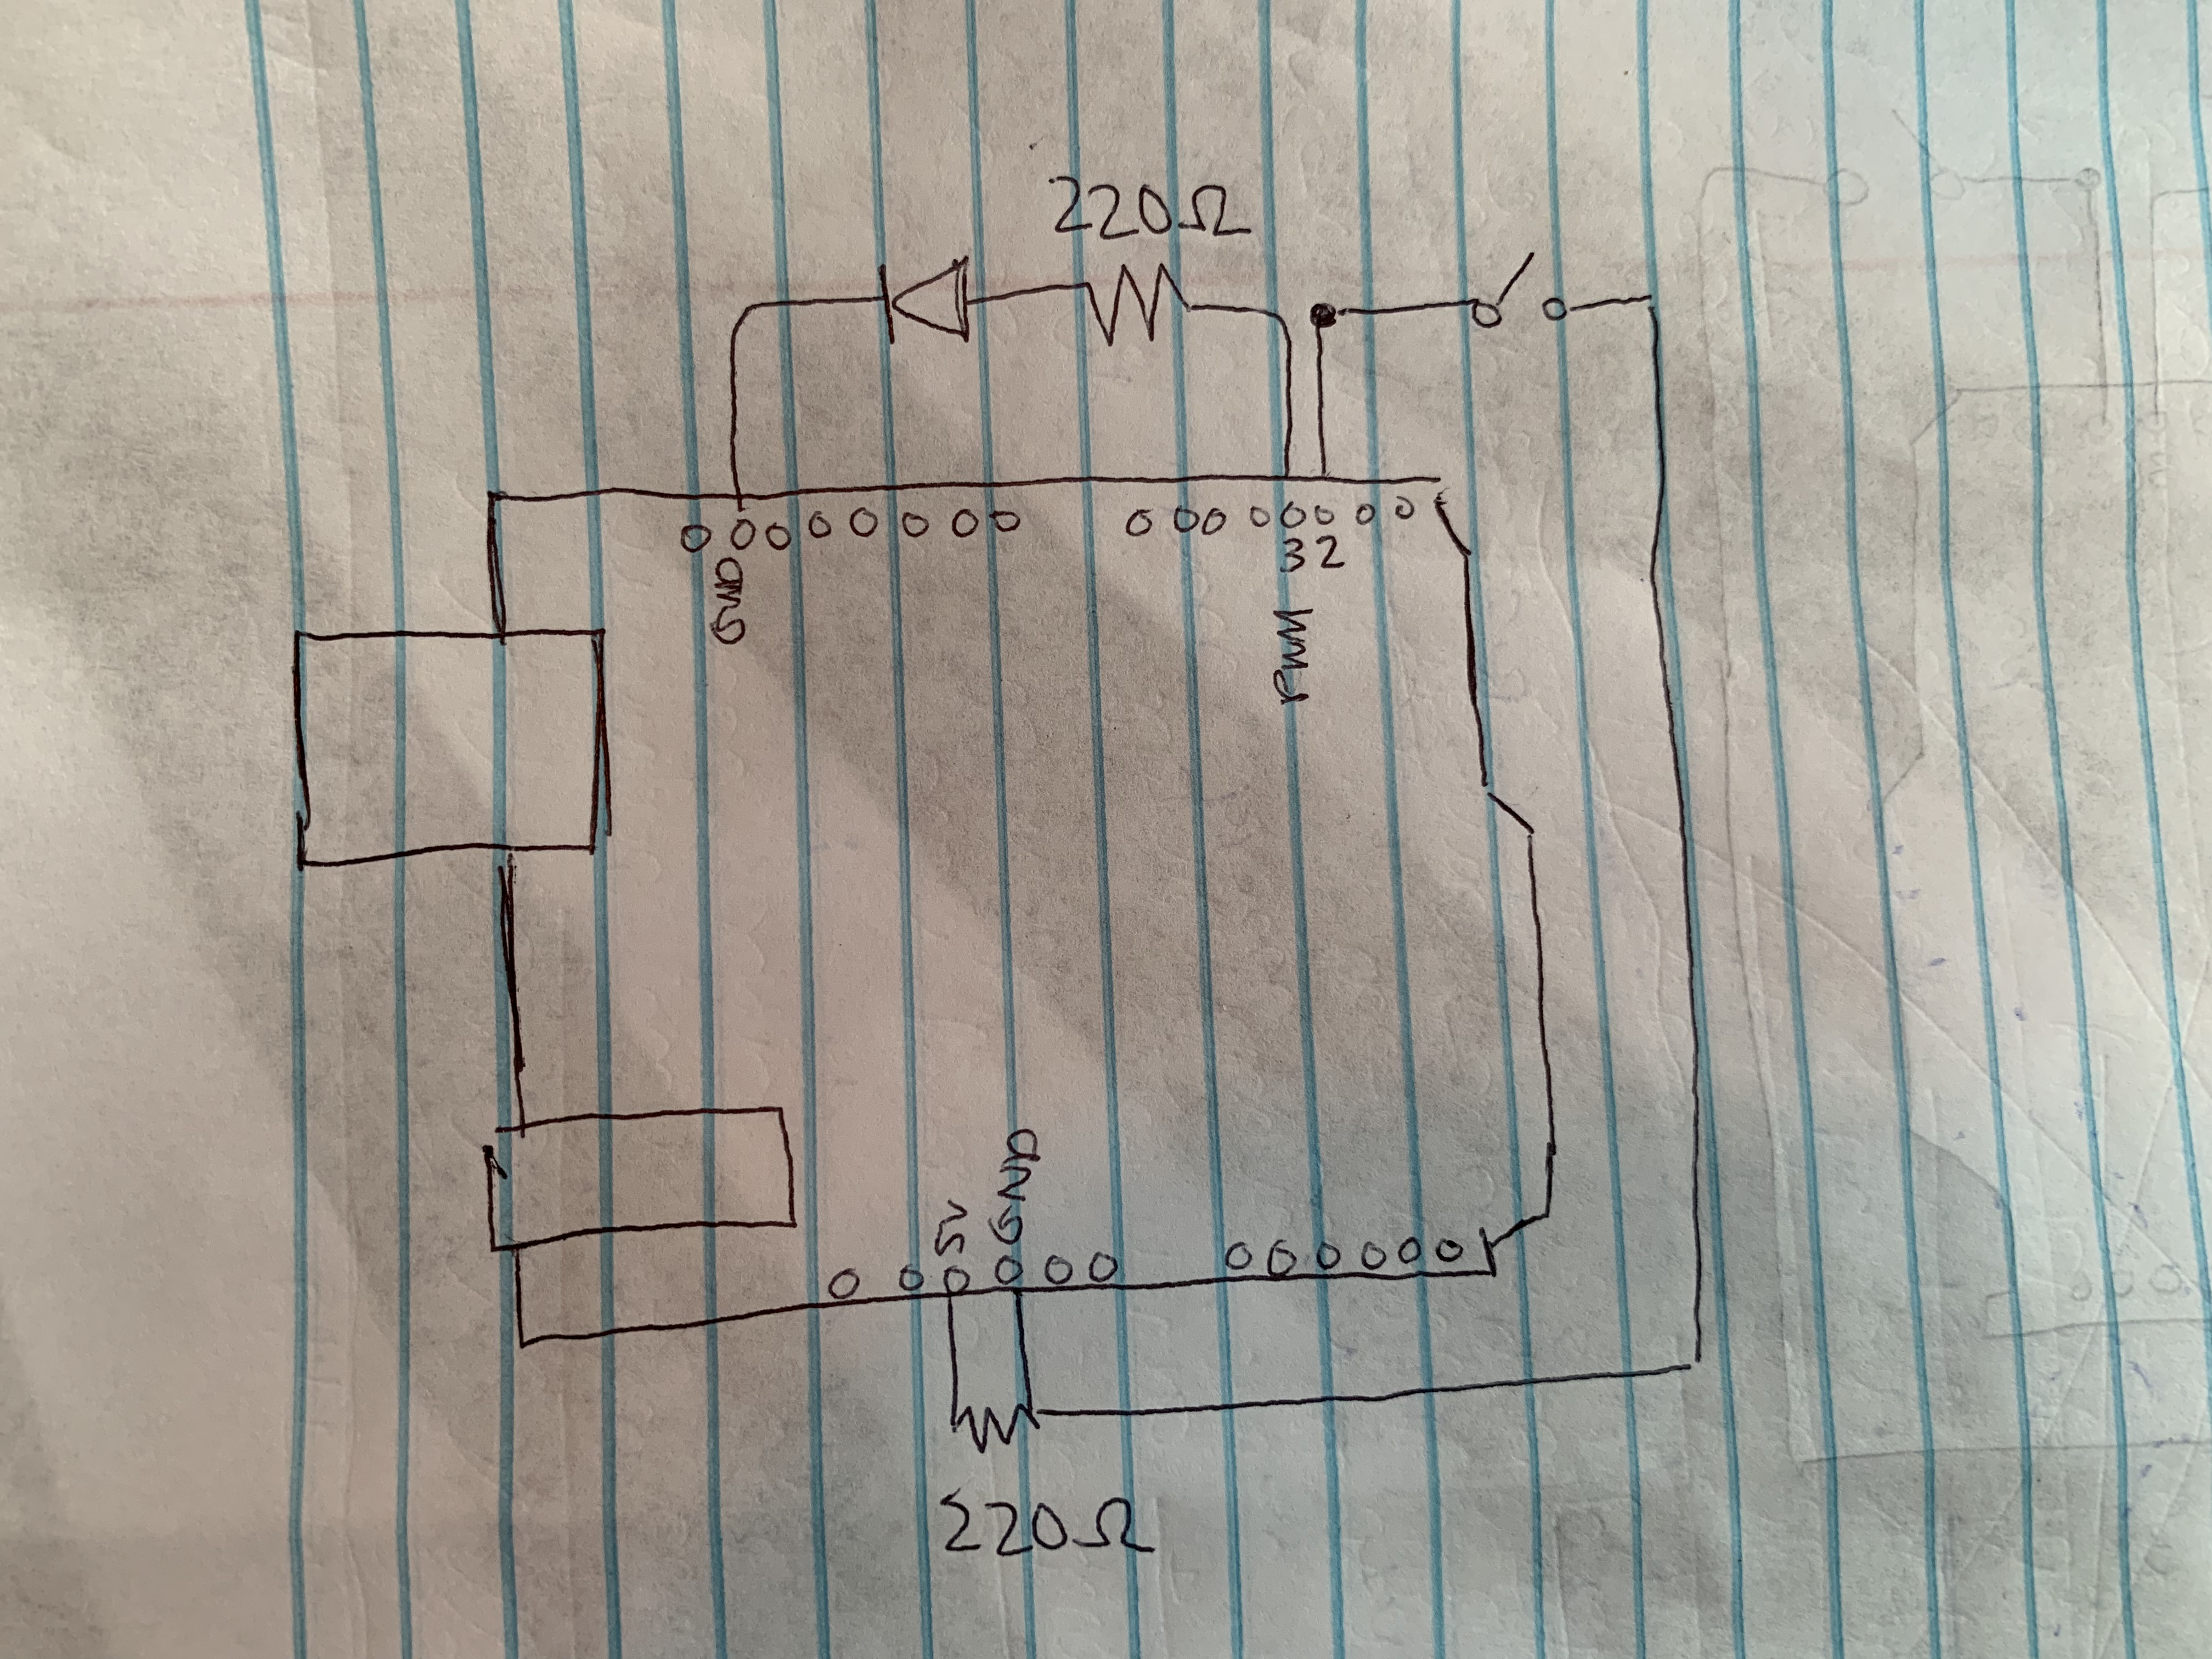 GND
5V
GND
220Ω
220Ω
PWM 3
2